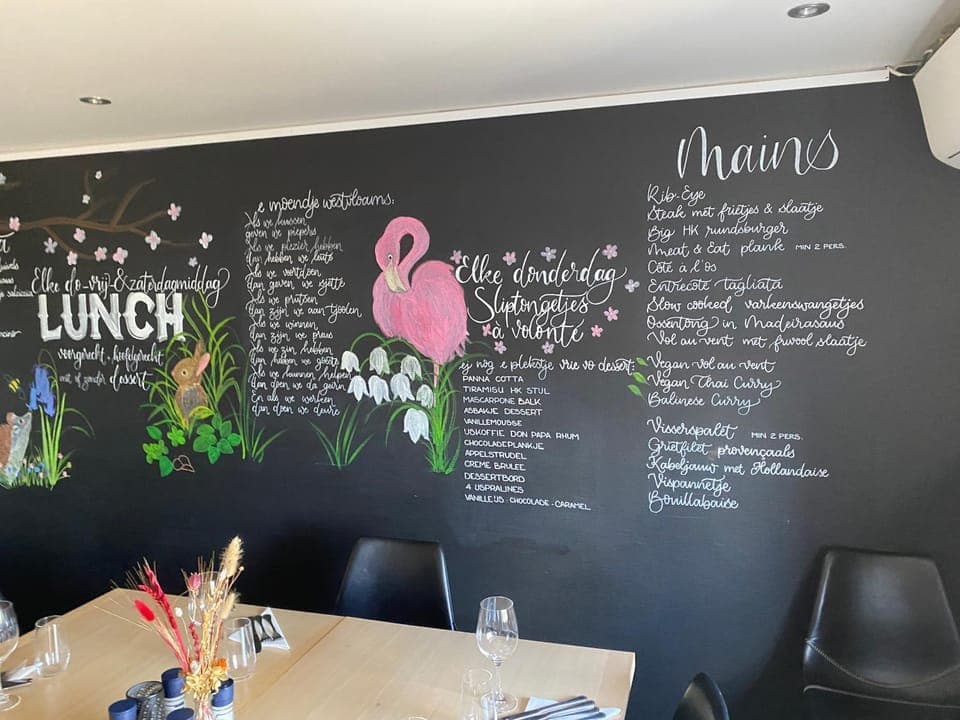 Elke do-vrij-&zaterdagmiddag
LUNCH
voorgerecht, hoofdgerecht
met of zonder dessert
e moendje westvloams:
Als we kussen
geven we piepers
Als we plezier hebben
dan hebben we leute
Als we
dan geven we
Als we
dan zijn we aan 't
Als we winnen
dan zijn we preus
Als we zin hebben
dan hebben we goeste
Als we kunnen helpen
dan doen we da geirn
En als we werken
dan doen we deure
Elke donderdag
Sliptongetjes
à volonté
ej nog e plekstje vrie vo dessert:
PANNA COTTA
TIRAMISU HK STIJL
MASCARPONE BALK
ASBAKJE DESSERT
VANILLEMOUSSE
IJSKOFFIE DON PAPA RHUM
CHOCOLADEPLANKJE
APPELSTRUDEL
CREME BRULEE
DESSERTBORD
4 IJSPRALINES
VANILLE IJS - CHOCOLADE - CARAMEL
Mains
Rib-Eye
Steak met frietjes & slaatje
Big HK rundsburger
Meat & Eat plank MIN 2 PERS.
Côte à l'os
Entrecôte tagliata
Slow cooked varkenswangetjes
Ossentong in Madeirasaus
Vol au vent met
Vegan vol au vent
Vegan Thai Curry
Balinese Curry
Visserspalet MIN 2 PERS.
Grietfilet provençaals
Kabeljauw met Hollandaise
Vispannetje
Bouillabaise